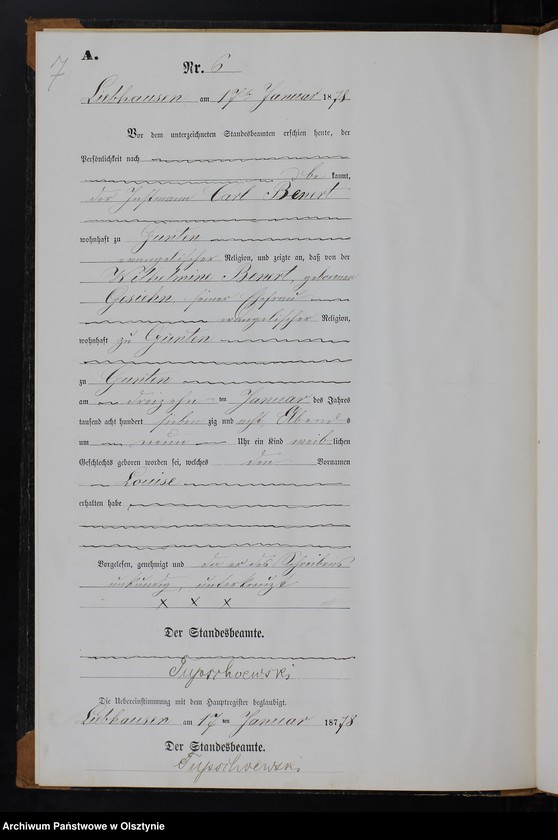 7
A.
Nr. 6
Liebhausen am 17ten Januar 1878
Vor dem unterzeichneten Standesbeamten erschien heute, der
Persönlichkeit nach
be kannt,
der Instmann Carl Benert
wohnhaft zu Gunten
evangelischer Religion, und zeigte an, daß von der
Wilhelmine Benert, geborenen
Gesiehn seiner Ehefrau
evangelischer Religion,
wohnhaft zu Gunten
zu Gunten
am dreizehn ten Januar des Jahres
tausend acht hundert sieben zig und acht, Abend s
um neun Uhr ein Kind weib lichen
Geschlechts geboren worden sei, welches den Vornamen
Louise
erhalten habe
Vorgelesen, genehmigt und da er des Schreibens
unkundig, unterkreuzt
x x x
Der Standesbeamte.
Die Uebereinstimmung mit dem Hauptregister beglaubigt.
Liebhausen am 17 ten Januar 1878
Der Standesbeamte.
Archiwum Państwowe w Olsztynie